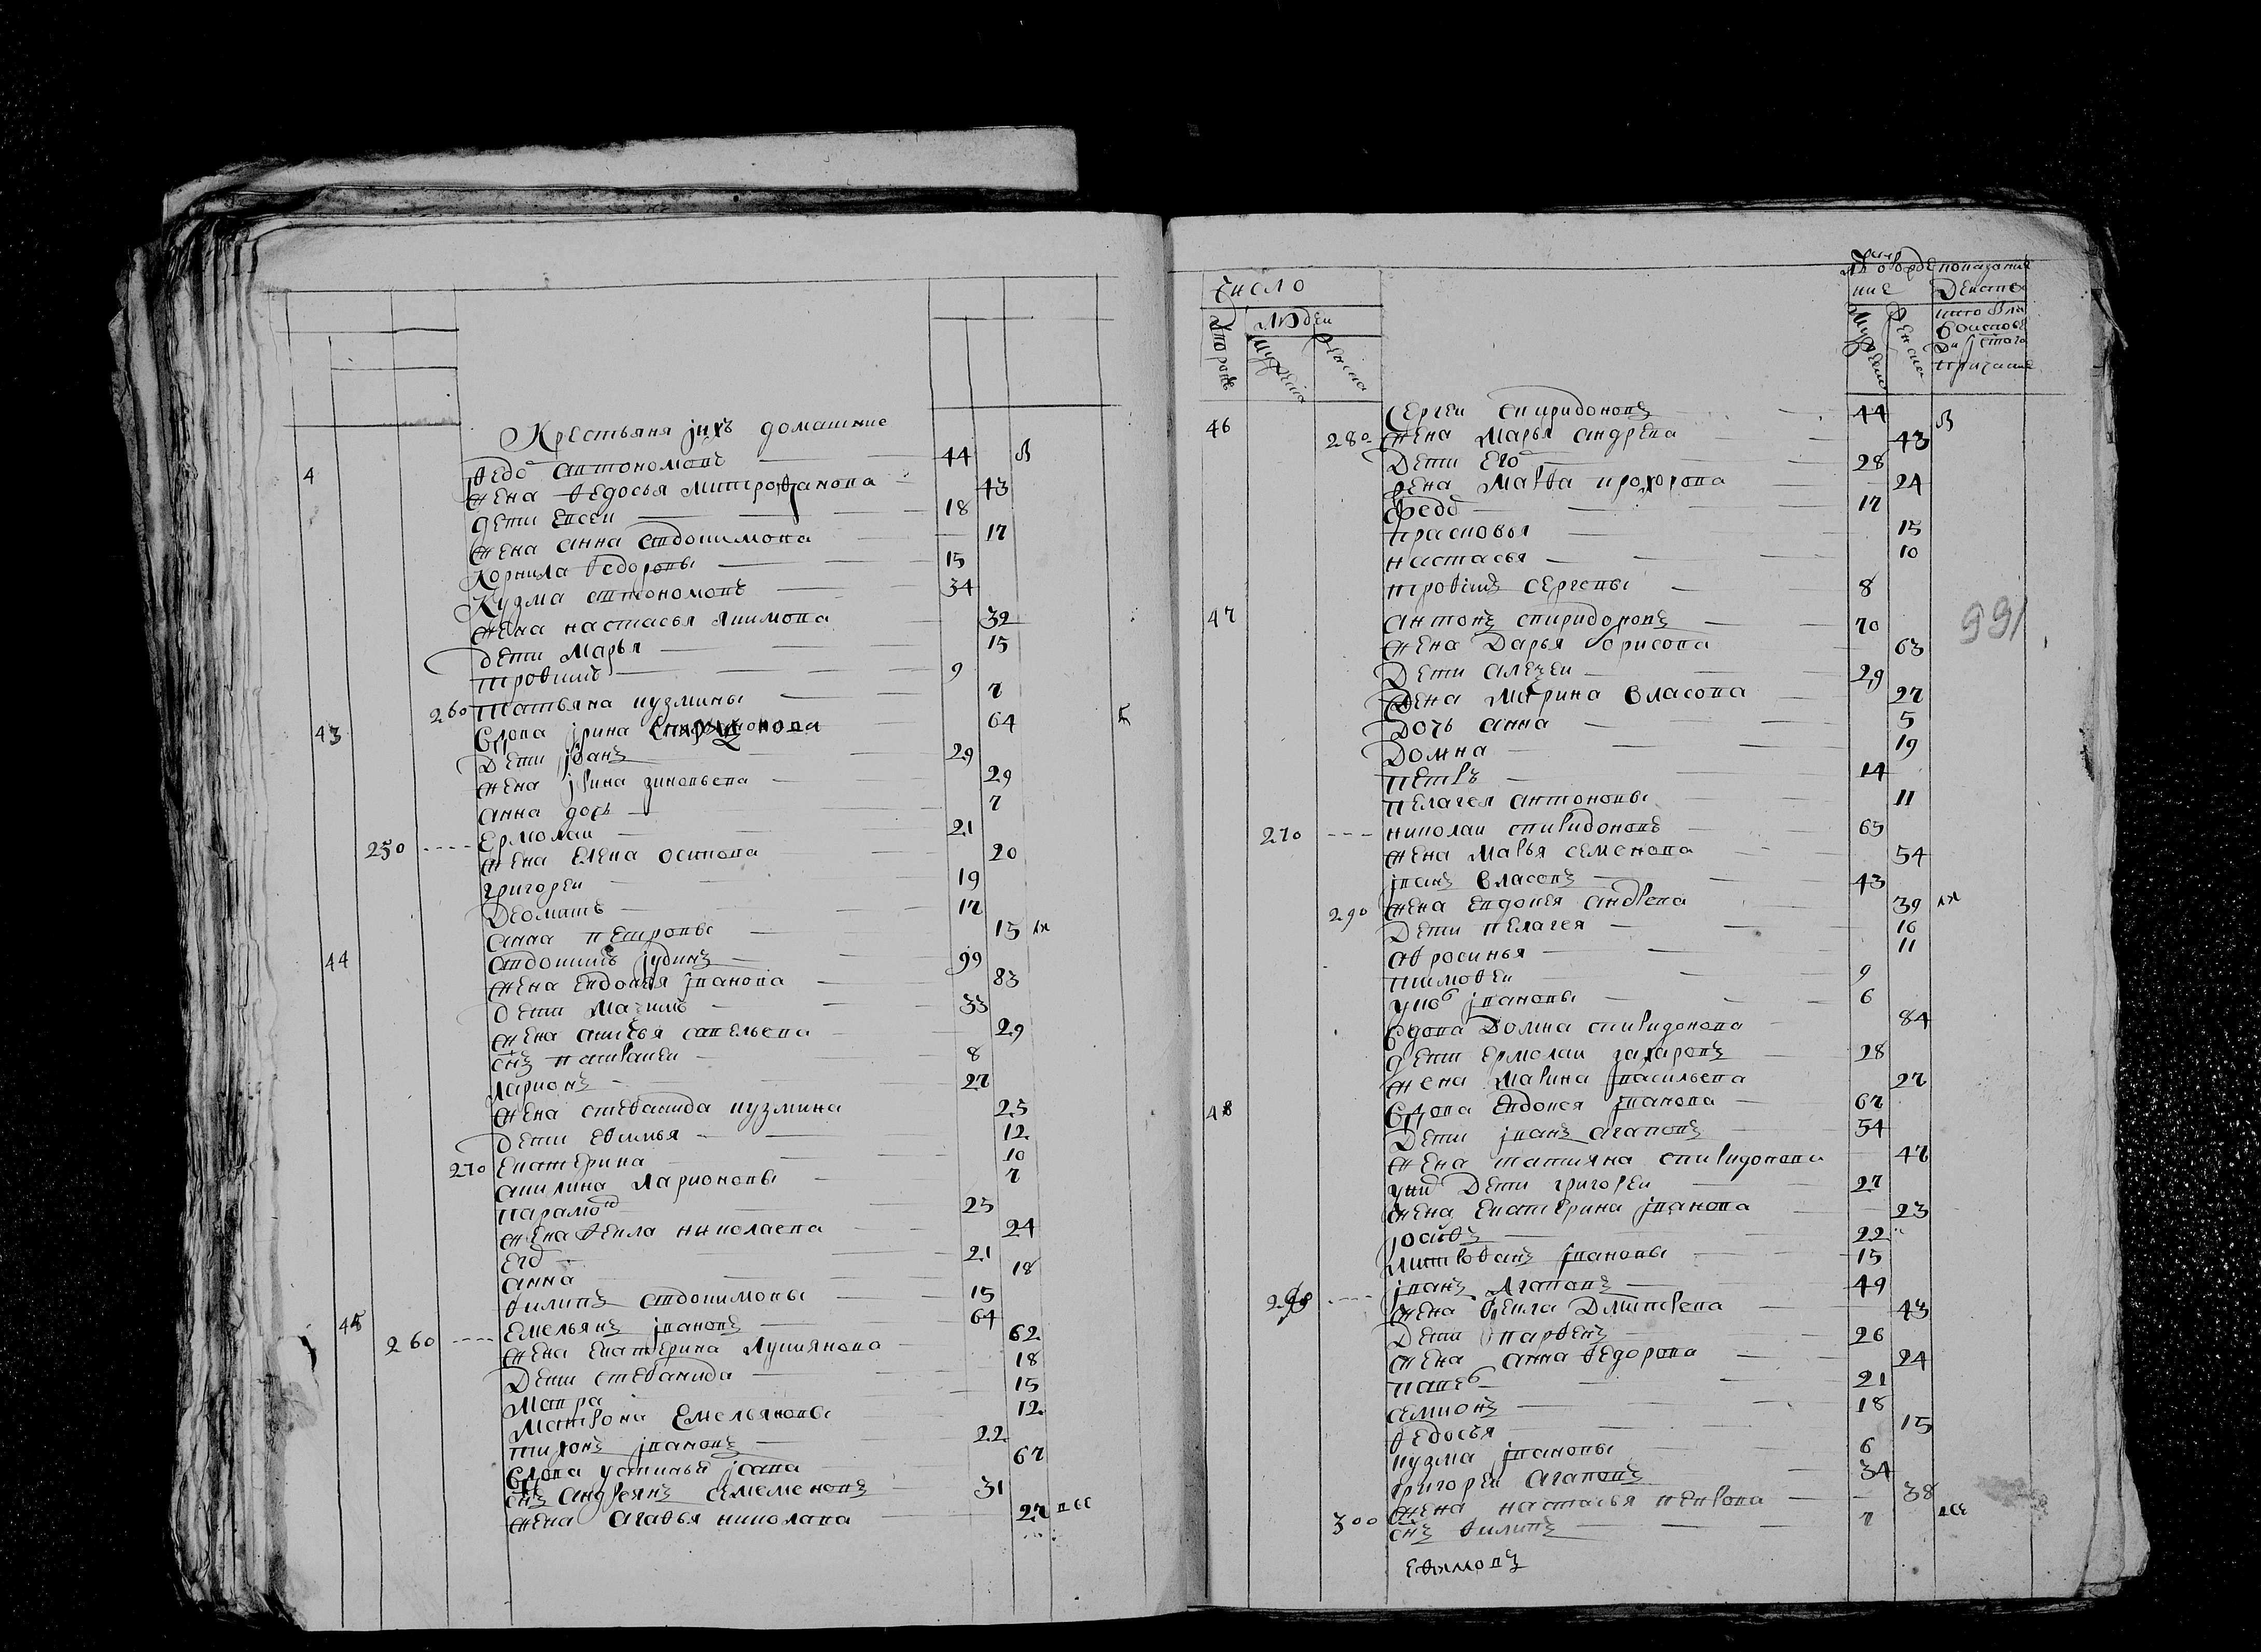 Крестьяня ихъ домашние
4 Ѳедо Автономовъ 44 в
жена Ѳедосья Митроѳанова 43
дети Евсеи 18
жена Анна Авдокимова 17
Корнила Ѳедоровы 15
Кузма Автономовъ 34
жена настасья Якимова 32
дети Марья 15
троѳимъ 9
260 татьяна кузмины 7
43 вдова ирина 64
Дети иванъ 29
жена ирина зиновьева 29
анна дочь 7
250 Ермолаи 21
жена Елена осипова 20
григореи 19
Деомитъ 17
анна петровы 15
44 авдокимъ юдинъ 99
жена Евдокея иванова 83
дети Мазимъ 33
жена савельева 29
снъ 8
Ларионъ 27
жена стеѳанида кузмина 25
дети еѳимья 12
270 Екатерина 10
акилина Ларионовы 7
парамо 25
жена Ѳекла николаева 24
Его 21
анна 18
Ѳилипъ авдокимовы 15
45 260 Емельянъ ивановъ 64
жена Екатерина Лукиянова 62
Дети стеѳанида 18
Мавра 15
Матрона Емельяновы 12
тихонъ ивановъ 22
вдова устинья 67
снъ Андреянъ семеменовъ 31
жена агаѳья николава 27
число
людеи
дворовъ мужеска женска
мужеска женска
46 Сергеи спиридоновъ 44 в
280 жена Марья андрева 43
Дети Его 28
жена Марѳа прохорова 24
Ѳедо 17
прасковья 15
настасья 10
троѳимъ сергевы 8
47 антонъ спиридоновъ 70
991
жена Дарья борисова 63
Дети алеѯеи 29
жена Марина власова 27
дочь анна 5
Домна 19
петръ 14
пелагея антоновы 11
270 николаи спиридоновъ 65
жена марья семенова 54
иванъ власовъ 43
290 жена Евдокея андрева 39
Дети пелагея 16
аѳросинья 11
тимоѳеи 9
ивановы 6
вдова Домна спиридонова 84
дети ермолаи захаровъ 28
жена Марина васильева 27
48 вдова Евдокея иванова 67
Дети иванъ агаповъ 54
жена татияна спиридонова 47
у них Дети григореи 27
жена Екатерина иванова 23
22
митроѳанъ ивановы 15
иванъ Агаповъ 49
жена Ѳекла Дмитрева 43
Дети парѳенъ 26
жена анна Ѳедорова 24
паве 21
семионъ 18
Ѳедосья 15
кузма ивановы 6
григореи агаповъ 34
жена настасья петрова 38
300 снъ Ѳилипъ 7
Еѳимовъ